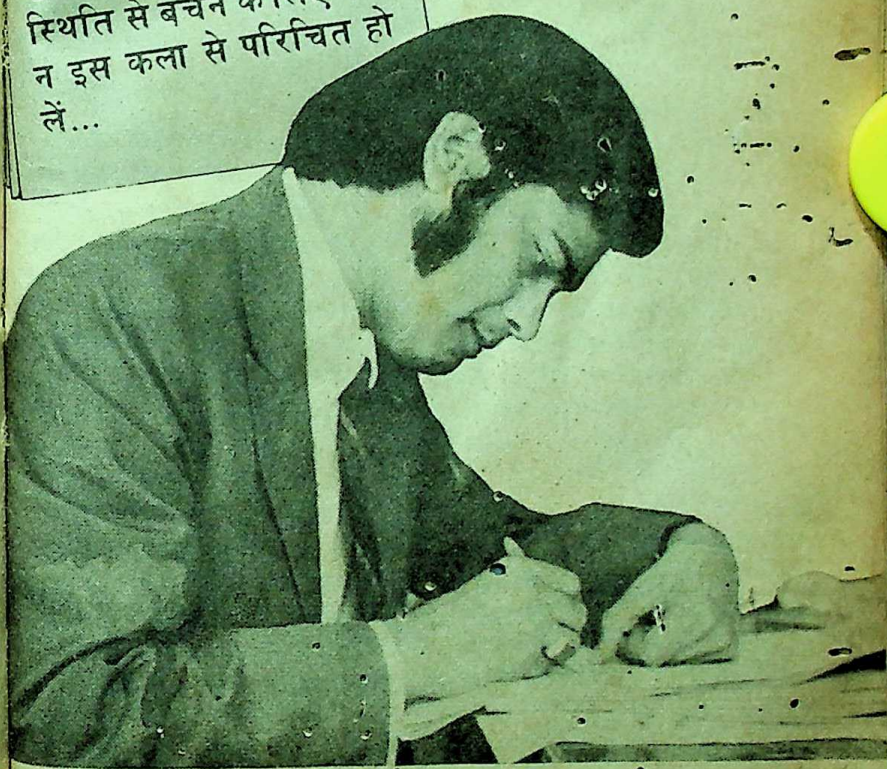 स्थिति से बचने के लिए
न इस कला से परिचित हो
लें...